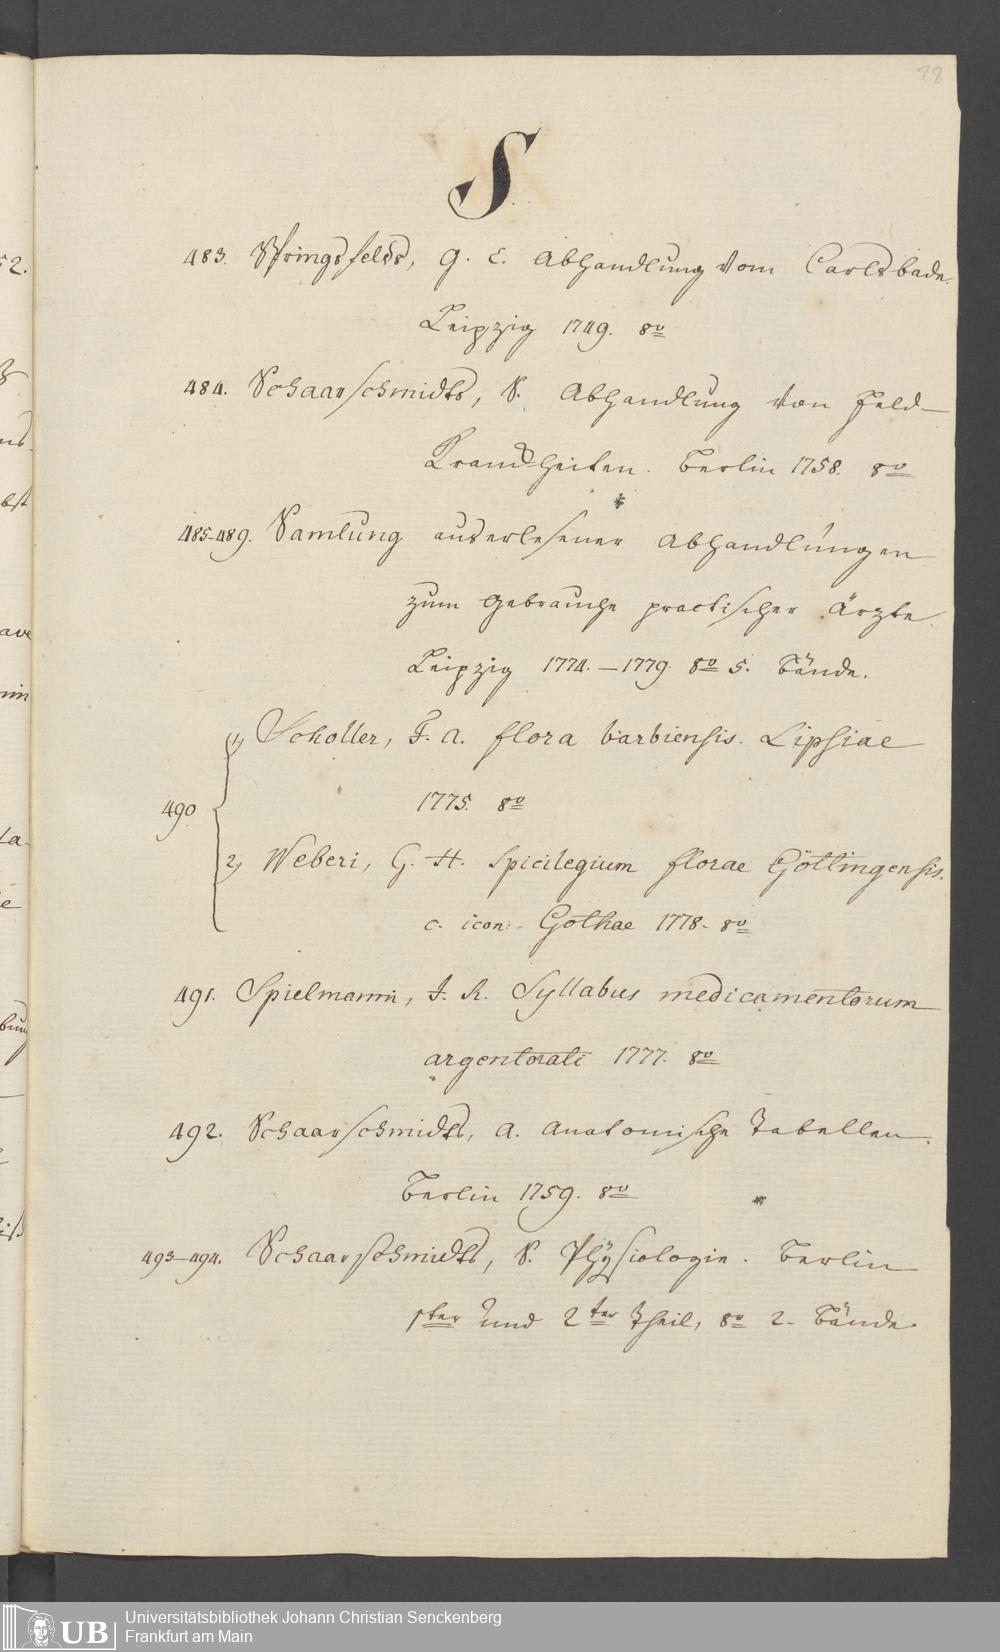 78
S.
483. Springsfelds, G. C. Abhandlung vom Carlsbade.
Leipzig 1749. 8º
484. Schaarschmidts, S. Abhandlung von Feld-
Krankheiten. Berlin 1758. 8º
485-489. Samlung auserlesener Abhandlungen
zum Gebrauche practischer Ärzte.
Leipzig 1774.-1779. 8º 5. Bände.
490 1) Scholler, F. A. flora barbiensis. Lipsiae
1775. 8º
2) Weberi, G. H. Spicilegium florae Göttingensis.
c. icon. Gothae 1778. 8º
491. Spielmann, J. R. Syllabus medicamentorum
argentorati 1777. 8º
492. Schaarschmidts, A. Anatomische Tabellen.
Berlin 1759. 8º
493-494. Schaarschmidts, S. Physiologie. Berlin
1ter und 2ter Theil, 8º 2. Bände.
UB Universitätsbibliothek Johann Christian Senckenberg
Frankfurt am Main